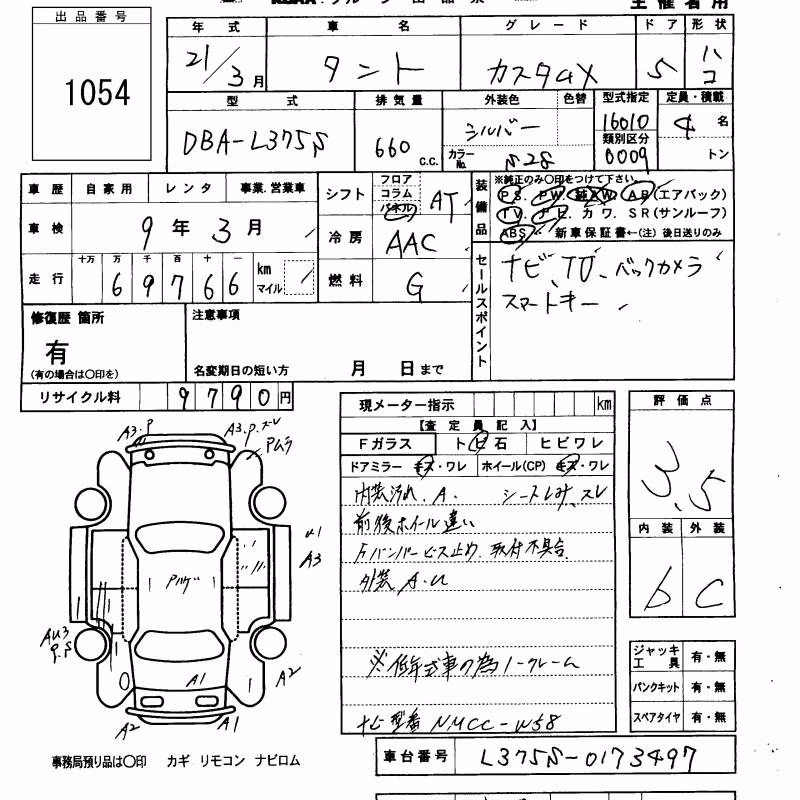 出品番号
1054
主催者用
年式 車名 グレード ドア 形状
21/3月 タント カスタムX 5 ハコ
型式 排気量 外装色 色替 型式指定 定員・積載
DBA-L375S 660 c.c. シルバー 16010 4 名
カラーNo. S28 類別区分 0009 トン
車歴 自家用 レンタ 事業.営業車
シフト フロア コラム パネル AT
車検 9年3月
冷房 AAC
走行 十万 万 千 百 十 一
69766 km マイル
燃料 G
装備品 ※純正のみ〇印をつけて下さい。
PS. PW. 純AW. AB(エアバック)
TV. ナビ. カワ. SR(サンルーフ)
ABS. 新車保証書←(注)後日送りのみ
セールスポイント
ナビ、TV、バックカメラ
スマートキー
修復歴 箇所
有
(有の場合は〇印を)
注意事項
名変期日の短い方 月 日まで
リサイクル料 9790円
現メーター指示 km
【査定員記入】
Fガラス トビ石 ヒビワレ
ドアミラー キズ・ワレ ホイール(CP) キズ・ワレ
内装汚れ.A. シートしみ、スレ
前後ホイール違い
Fバンパービス止め.取付不具合
外装 A.U
※低年式車の為ノークレーム
ナビ型番 NMCC-W58
評価点
3.5
内装 外装
b C
ジャッキ工具 有・無
パンクキット 有・無
スペアタイヤ 有・無
A3.P
A3.P.スレ
Pムラ
U1
A3
Pハゲ
AU3
P.S
A1
A2
A2
A1
事務局預り品は〇印 カギ リモコン ナビロム
車台番号 L375S-0173497